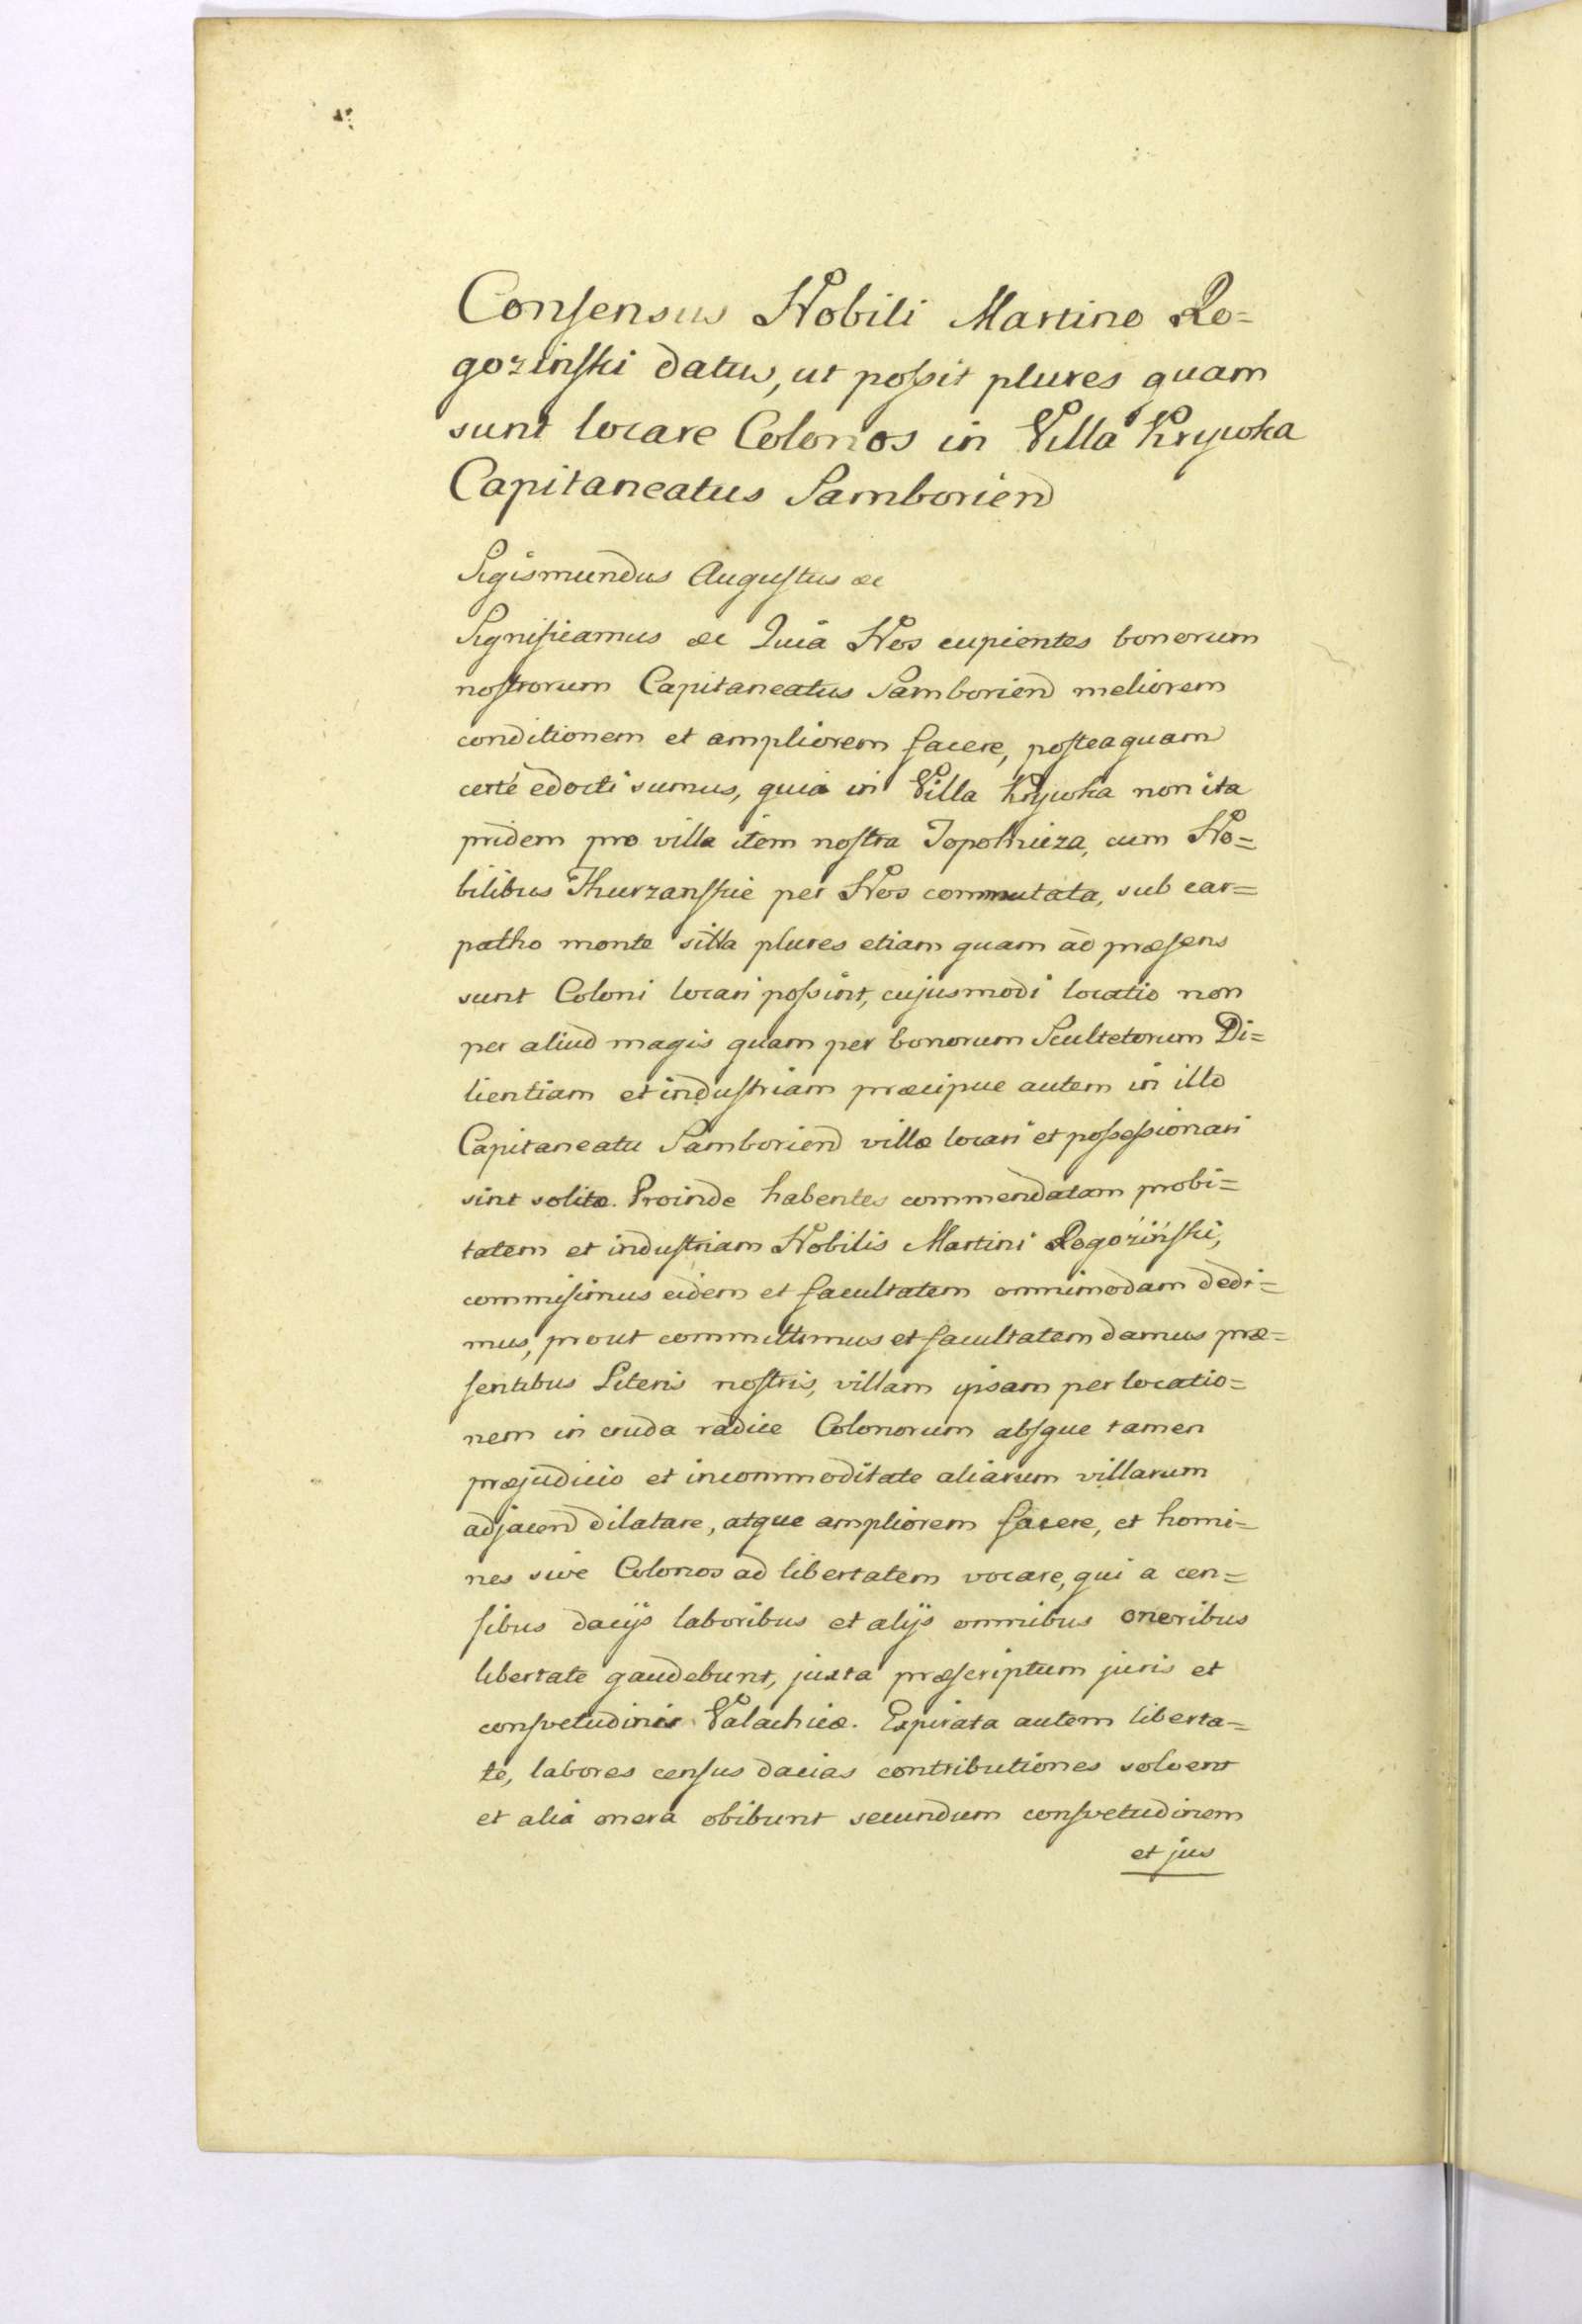 Consensus Nobili Martino Ro=
gozinski datus, ut possit plures quam
sunt locare Colonos in Villa Krywka
Capitaneatus Samborien
Sigismundus Augustus &c
Significamus &c Quia Nos cupientes bonorum
nostrorum Capitaneatus Samborien meliorem
conditionem et ampliorem facere, posteaquam
certé edocti sumus, quia in Villa Krywka non ita
pridem pro villa item nostra Topolnicza, cum No=
bilibus Thurzanskie per Nos commutata, sub car=
patho monte sitta plures etiam quam ad præsens
sunt Coloni locari possint, cujusmodi locatio non
per aliud magis quam per bonorum Scultetorum Di=
lientiam et industriam præcipue autem in illo
Capitaneatu Samborien villæ locari et possessionari
sint solitæ. Proinde habentes commendatam probi=
tatem et industriam Nobilis Martini Rogóziński,
commisimus eidem et facultatem omnimodam dedi=
mus, prout committimus et facultatem damus præ=
sentibus Literis nostris, villam ipsam per locatio=
nem in cruda radice Colonorum absque tamen
præjudicio et incommoditate aliarum villarum
adjacen dilatare, atque ampliorem facere, et homi=
nes sive Colonos ad libertatem vocare, qui a cen=
sibus dacijs laboribus et alijs omnibus oneribus
libertate gaudebunt, juxta præscriptum juris et
consvetudinis Valachicæ. Expirata autem liberta=
te, labores census dacias contributiones solvent
et alia onera obibunt secundum consvetudinem
et jus